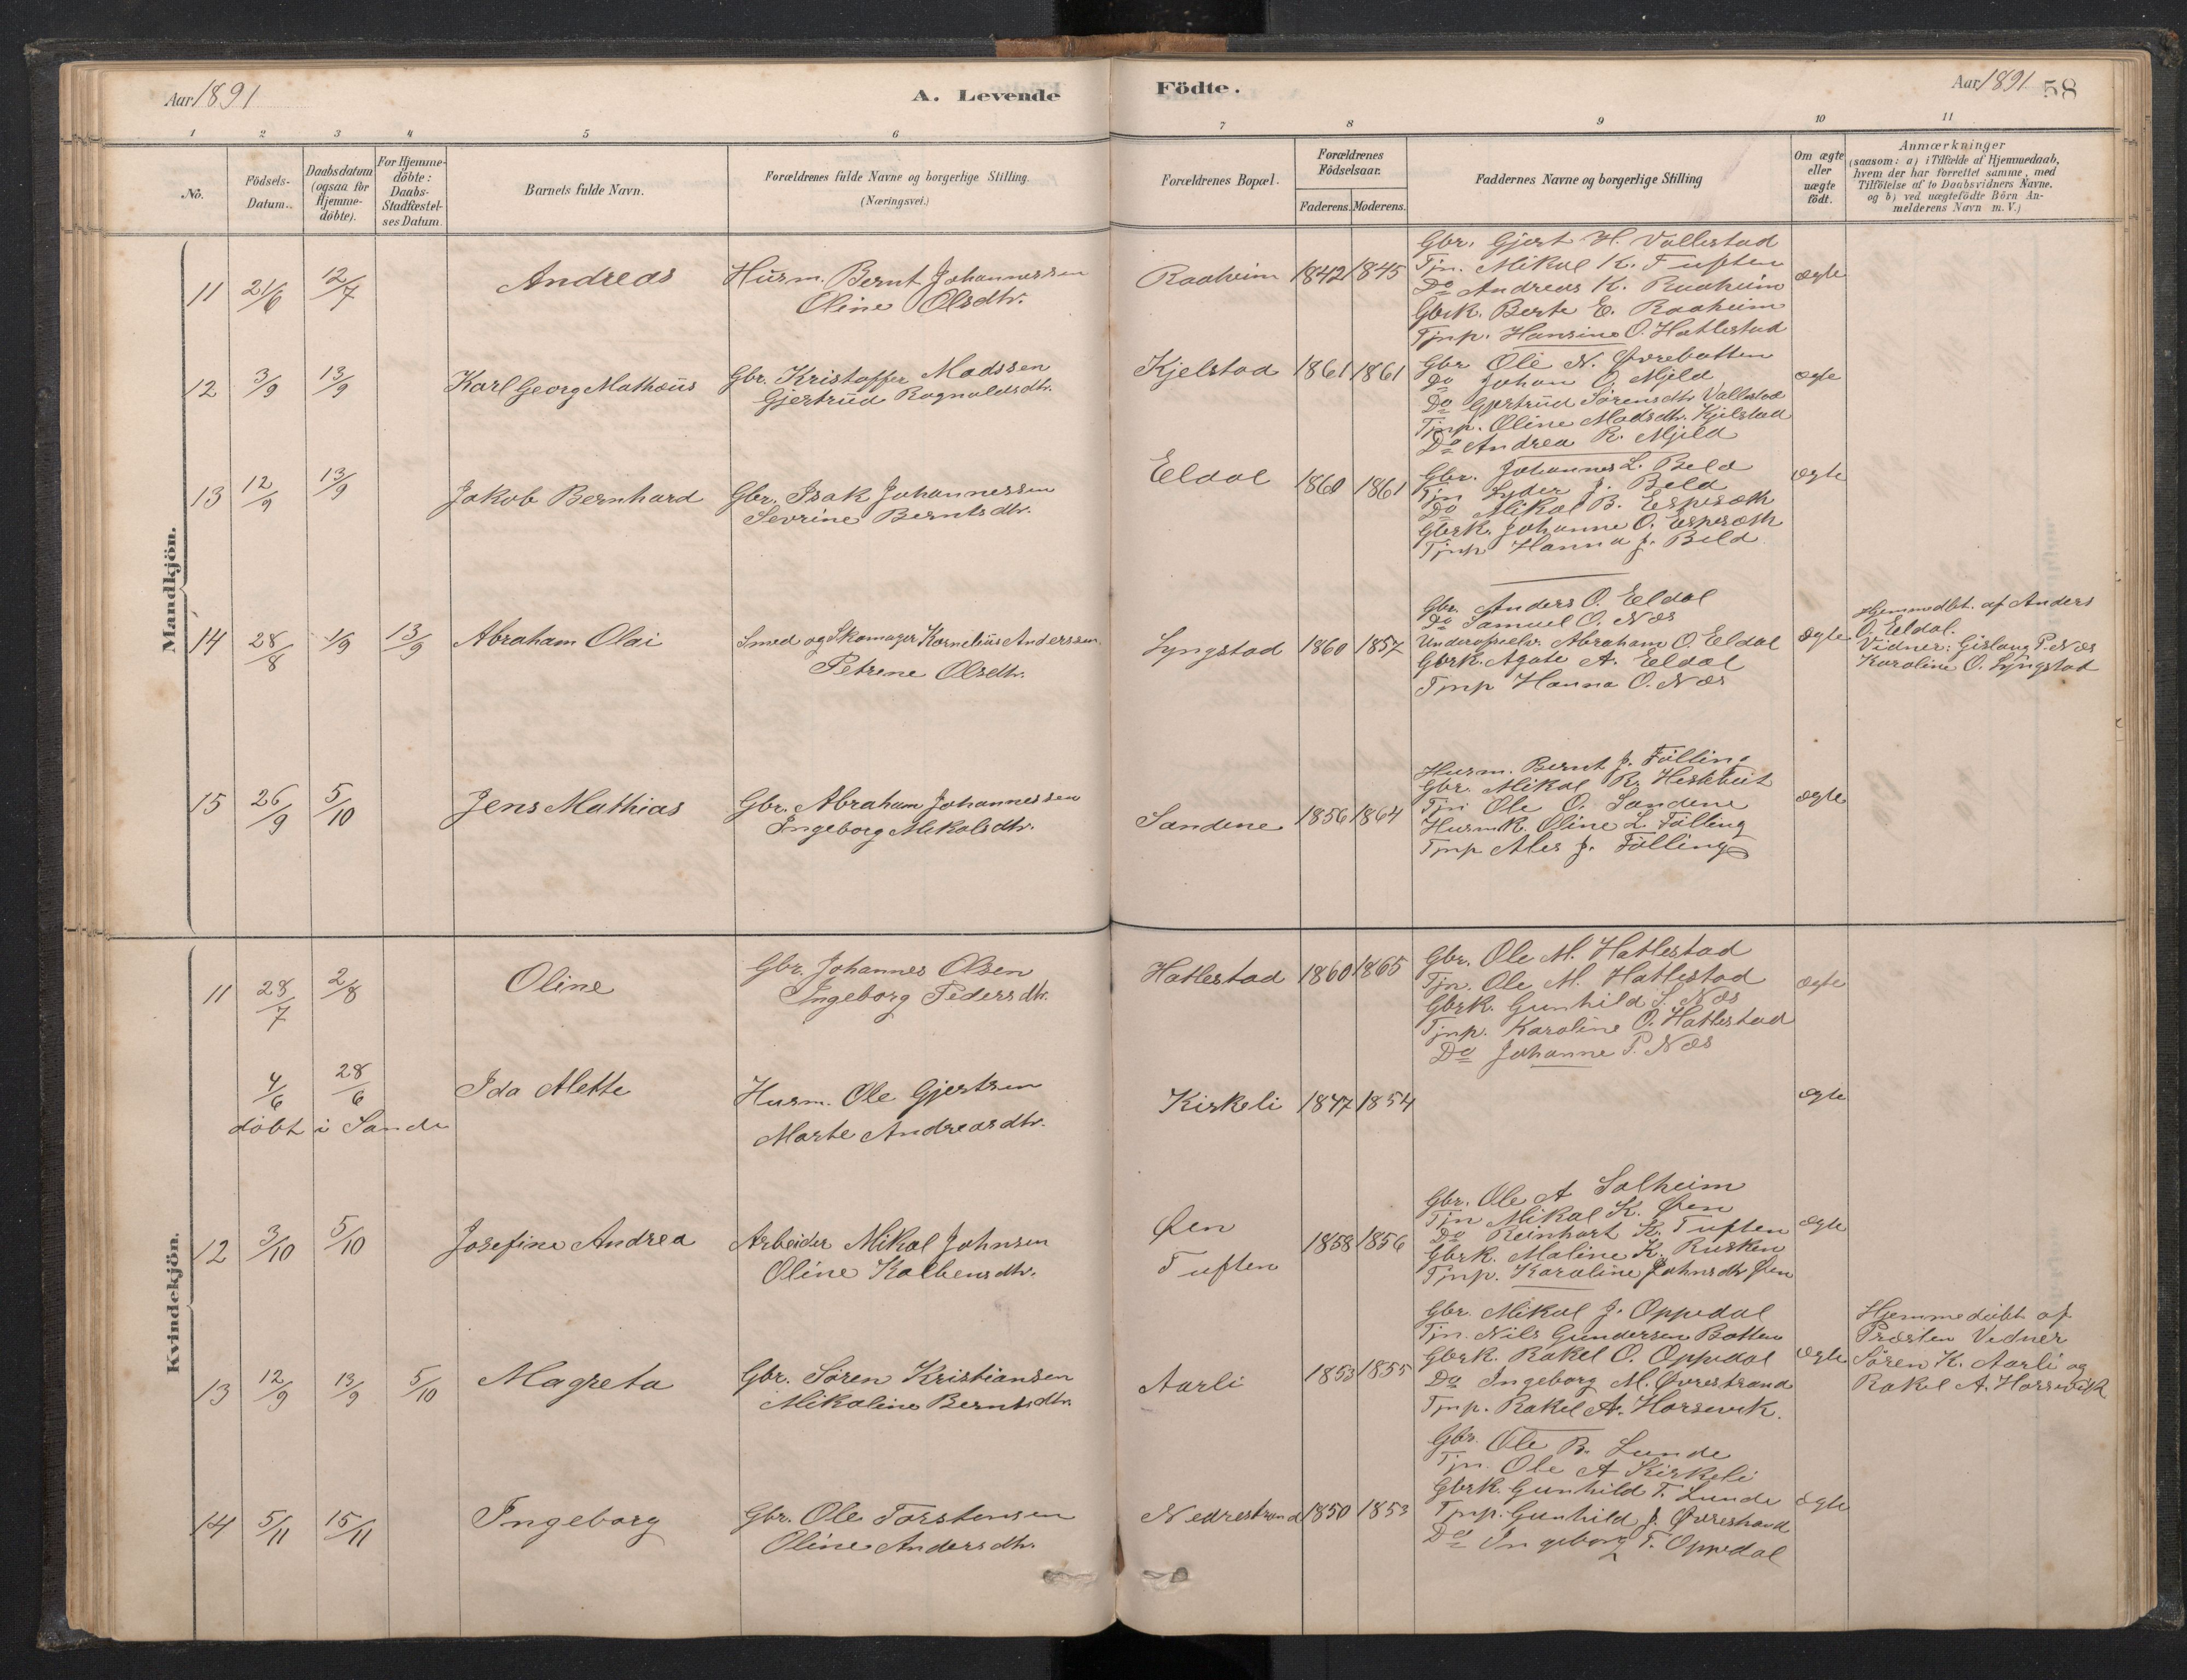 Aar 1891
A. Levende
Födte.
Aar 1891
58
1 2 3 4 5 6 7 8 9 10 11
No.
Födsels-
Datum.
Daabsdatum
(ogsaa for
Hjemme-
döbte).
For Hjemme-
döbte:
Daabs-
Stadfæstel-
ses Datum.
Barnets fulde Navn.
Forældrenes fulde Navne og borgerlige Stilling.
(Næringsvei.)
Forældrenes Bopæl.
Forældrenes
Födselsaar.
Faderens. Moderens.
Faddernes Navne og borgerlige Stilling
Om ægte
eller
uægte
födt.
Anmærkninger
(saasom: a) i Tilfælde af Hjemmedaab,
hvem der har forrettet samme, med
Tilföielse af to Daabsvidners Navne.
og b) ved uægtefödte Börn An-
melderens Navn m. V.)
Mandkjön.
11 21/6 12/7 Andreas
Husm. Bernt Johannessen
Oline Olsdtr.
Raaheim 1842 1845
Gbr. Gjert H. Vallestad
Tjn. Mikal K. Tuften
Do Andreas K. Raaheim
Gbrk. Berte E. Raaheim
Tjnp. Hansine O. Hatlestad
ægte
12 3/9 13/9 Karl Georg Mathæus
Gbr. Kristoffer Madssen
Gjertrud Ragnaldsdtr.
Kjelstad 1861 1861
Gbr Ole N. Øvrebotten
Do Johan O. Mjeld
Do Gjertrud Sørensdtr Vallestad
Tjnp. Oline Madsdtr. Kjelstad
Do Andrea R. Mjeld
ægte
13 12/9 13/9 Jakob Bernhard
Gbr. Isak Johannessen
Sevrine Berntsdtr.
Eldal 1860 1861
Gbr. Johannes L. Beld
Tjn Lyder J. Beld
Do Mikal B. Espesæth
Gbrk. Johanne O. Espesæth
Tjnp Hanna J. Beld
ægte
14 28/8 1/9 13/9 Abraham Olai
Smed og Skomager Kornelius Anderssen
Petrine Olsdtr.
Lyngstad 1860 1857
Gbr. Anders O. Eldal
Do Samuel O. Næs
Abraham O. Eldal
Gbrk. Agate A. Eldal
Tjnp Hanna O. Næs
ægte
Hjemmedbt. af Anders
O. Eldal.
Vidner: Gislaug P. Næs
Karoline O. Lyngstad
15 26/9 5/10 Jens Mathias
Gbr. Abraham Johannessen
Ingeborg Mikalsdtr.
Sandene 1856 1864
Husm. Bernt J. Fölling
Gbr. Mikal R. Hestbeit
Tjn Ole O. Sandene
Husmk. Oline L. Fölling
Tjnp Ales J. Fölling
ægte
Kvindekjön.
11 28/7 2/8 Oline
Gbr. Johannes Olsen
Ingeborg Pedersdtr.
Hatlestad 1860 1865
Gbr. Ole M. Hatlestad
Tjn. Ole M. Hatlestad
Gbrk. Gunhild S. Næs
Tjnp. Karoline O. Hatlestad
Do Johanne P. Næs
ægte
4/6 28/6 Ida Alette
döbt i Sande
Husm. Ole Gjertsen
Marte Andreasdtr.
Kirkeli 1847 1854
ægte
12 3/10 5/10 Josefine Andrea
Arbeider Mikal Johnsen
Oline Kolbensdtr.
Øen
Tuften
1858 1856
Gbr. Ole A Solheim
Tjn Mikal K. Øen
Do Reinhart K. Tuften
Gbrk. Maline K. Rusken
Tjnp. Karoline Johnsdtr Øen
ægte
13 12/9 13/9 5/10 Magreta
Gbr. Sören Kristiansen
Mikaline Berntsdtr
Aarli 1853 1855
Gbr. Mikal J. Oppedal
Tjn. Nils Gundersen Botten
Gbrk. Rakel O. Oppedal
Do Ingeborg M. Øvrestrand
Tjnp. Rakel A. Horsevik.
ægte
Hjemmedöbt af
Præsten Vidner
Sören K. Aarli og
Rakel A. Horsevik
14 5/11 15/11 Ingeborg
Gbr. Ole Torstensen
Oline Andersdtr.
Nedrestrand 1850 1853
Gbr. Ole B. Lunde
Tjn. Ole A Kirkeli
Gbrk. Gunhild T. Lunde
Tjnp. Gunhild J. Øvrestrand
Do Ingeborg T. Oppedal
ægte